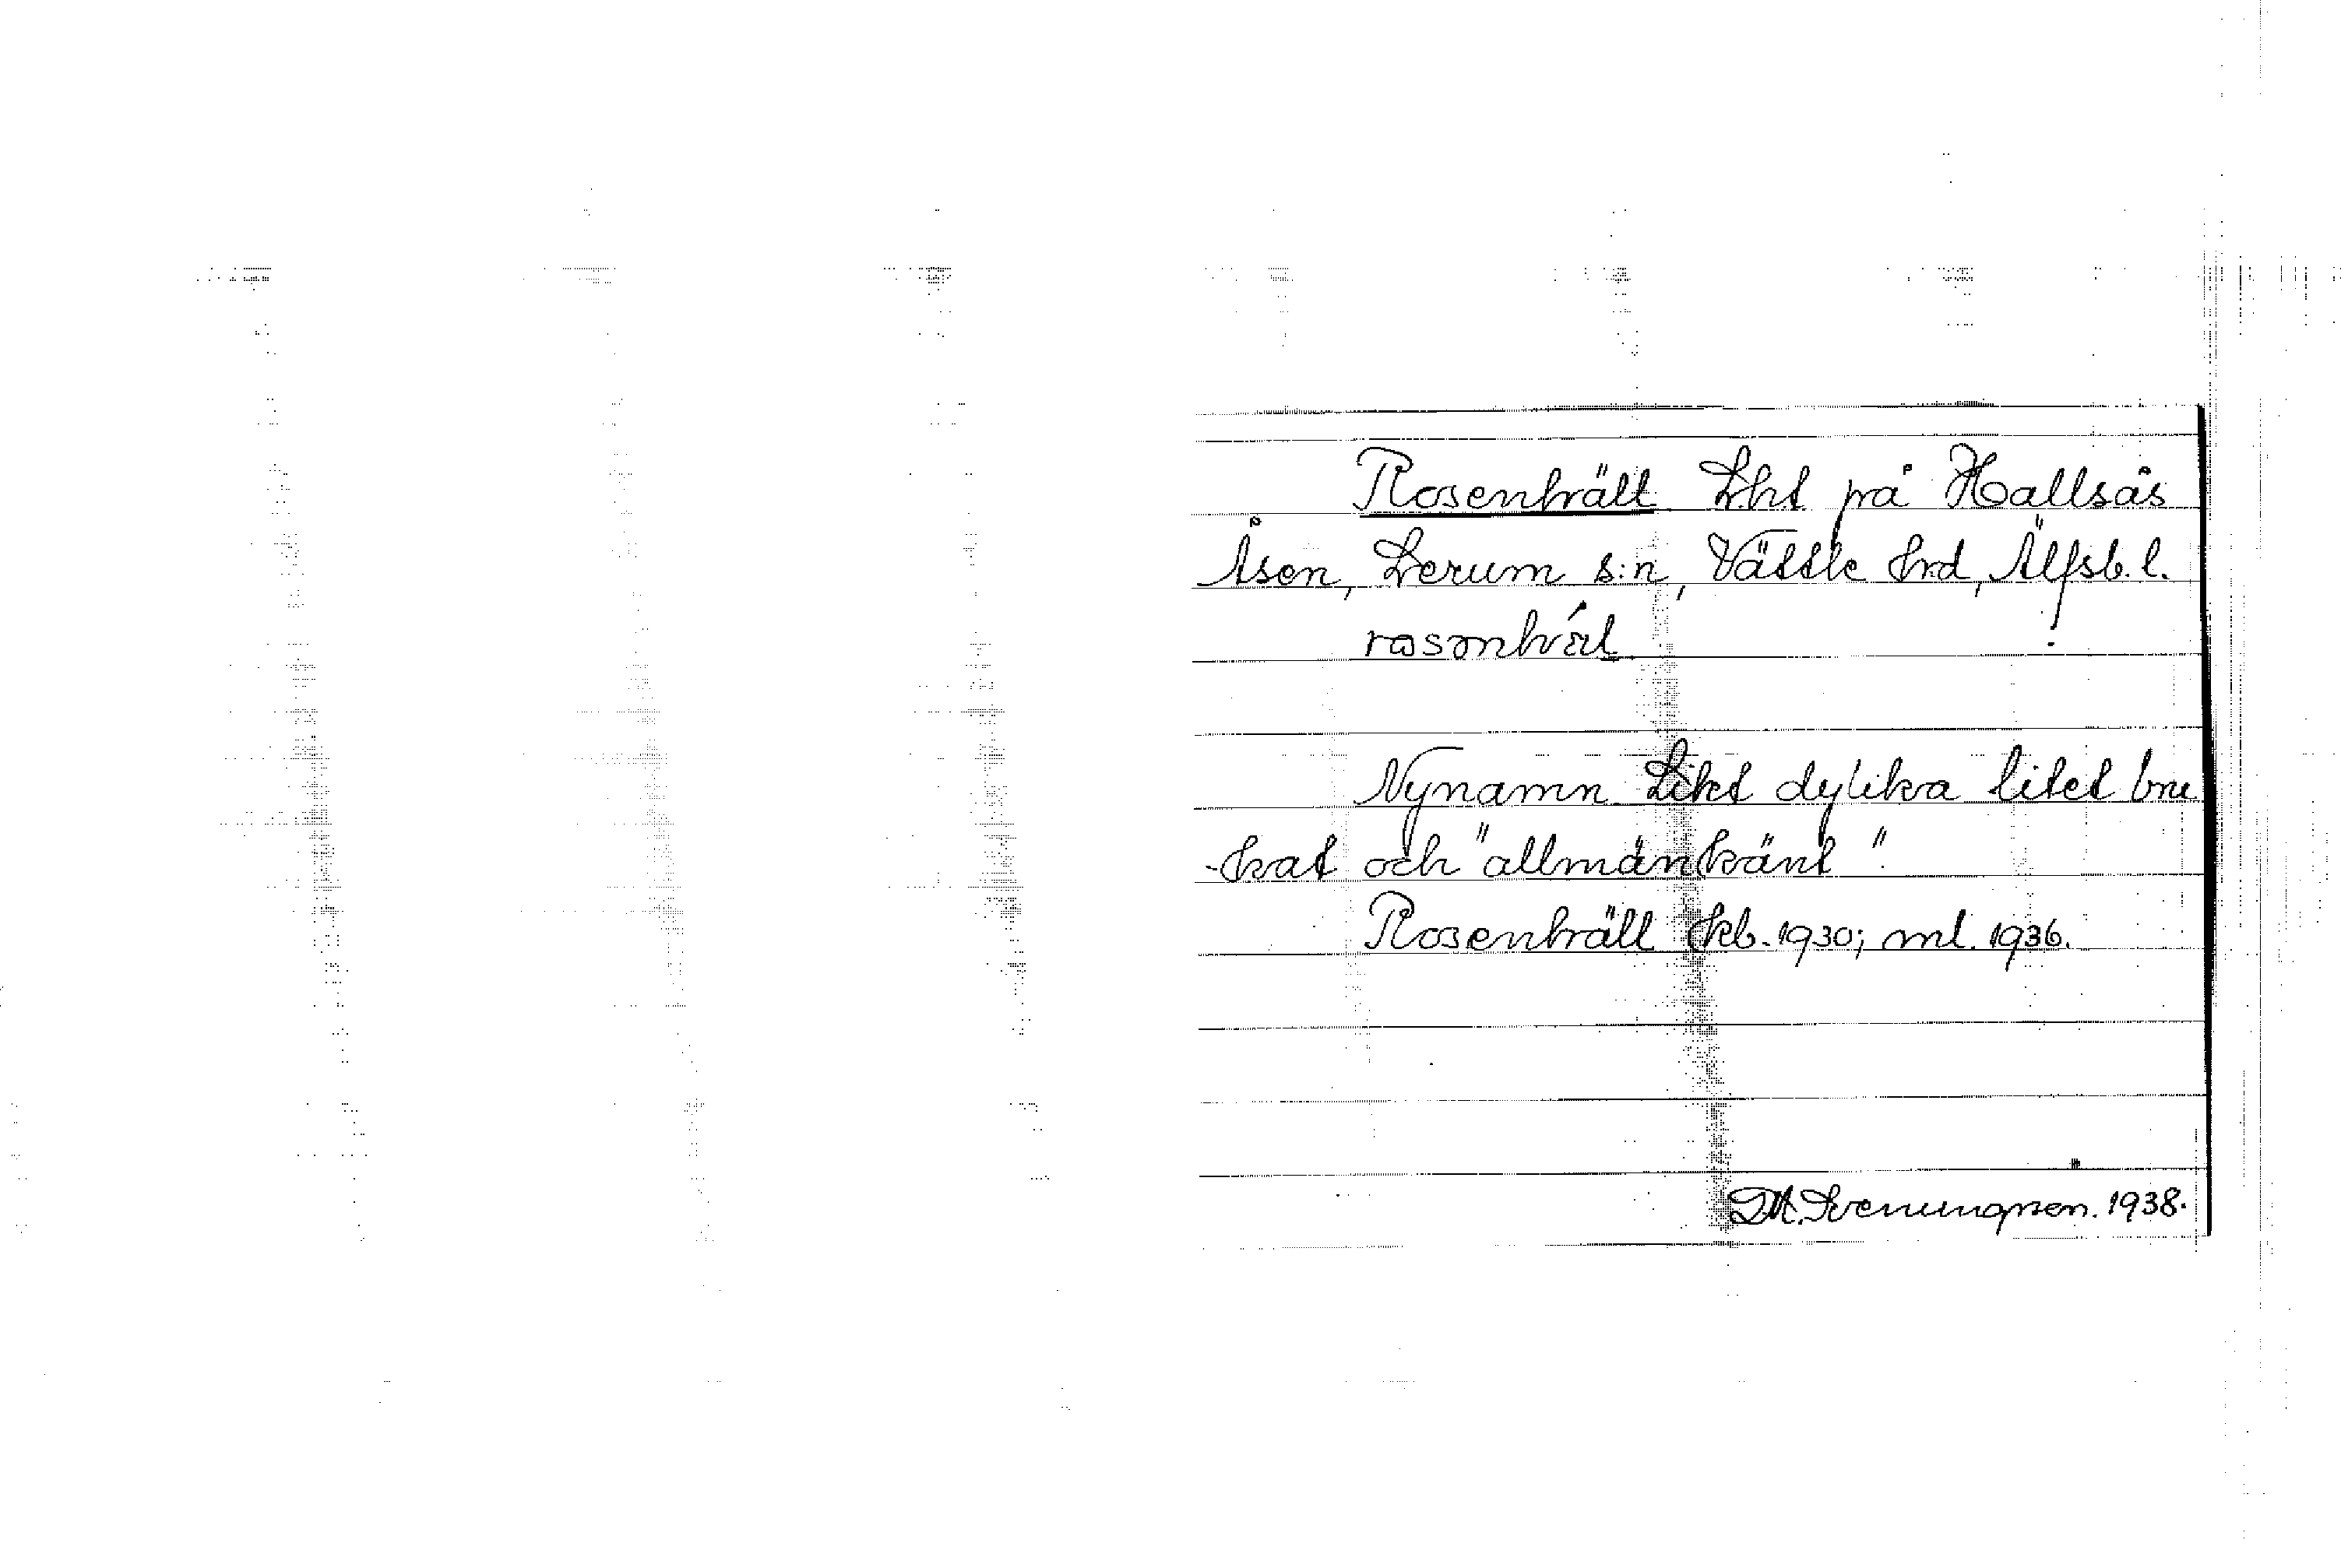 Rosenkväll Lht på Hallsås
Åsen, Lerum s:n, Vättle hrd, Älfsb. l.
Nynamn Likt dylika litet bru
-kat och "allmänkänt".
Rosenkväll Kb. 1930; ml. 1936.
1938.